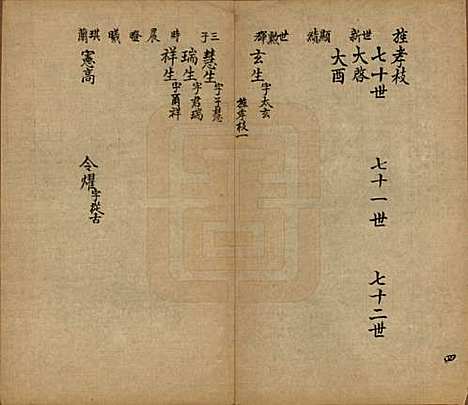 推孝枝
七十世 七十一世 七十二世
世新 顯績 世勲輝
大啓
大酉
四
玄生 字太玄
推孝枝一
三子 時 晨 曦 琪 蘭
慧生 字子慧
瑞生 字君瑞
祥生 字爾祥
憲高 令燿 字從古